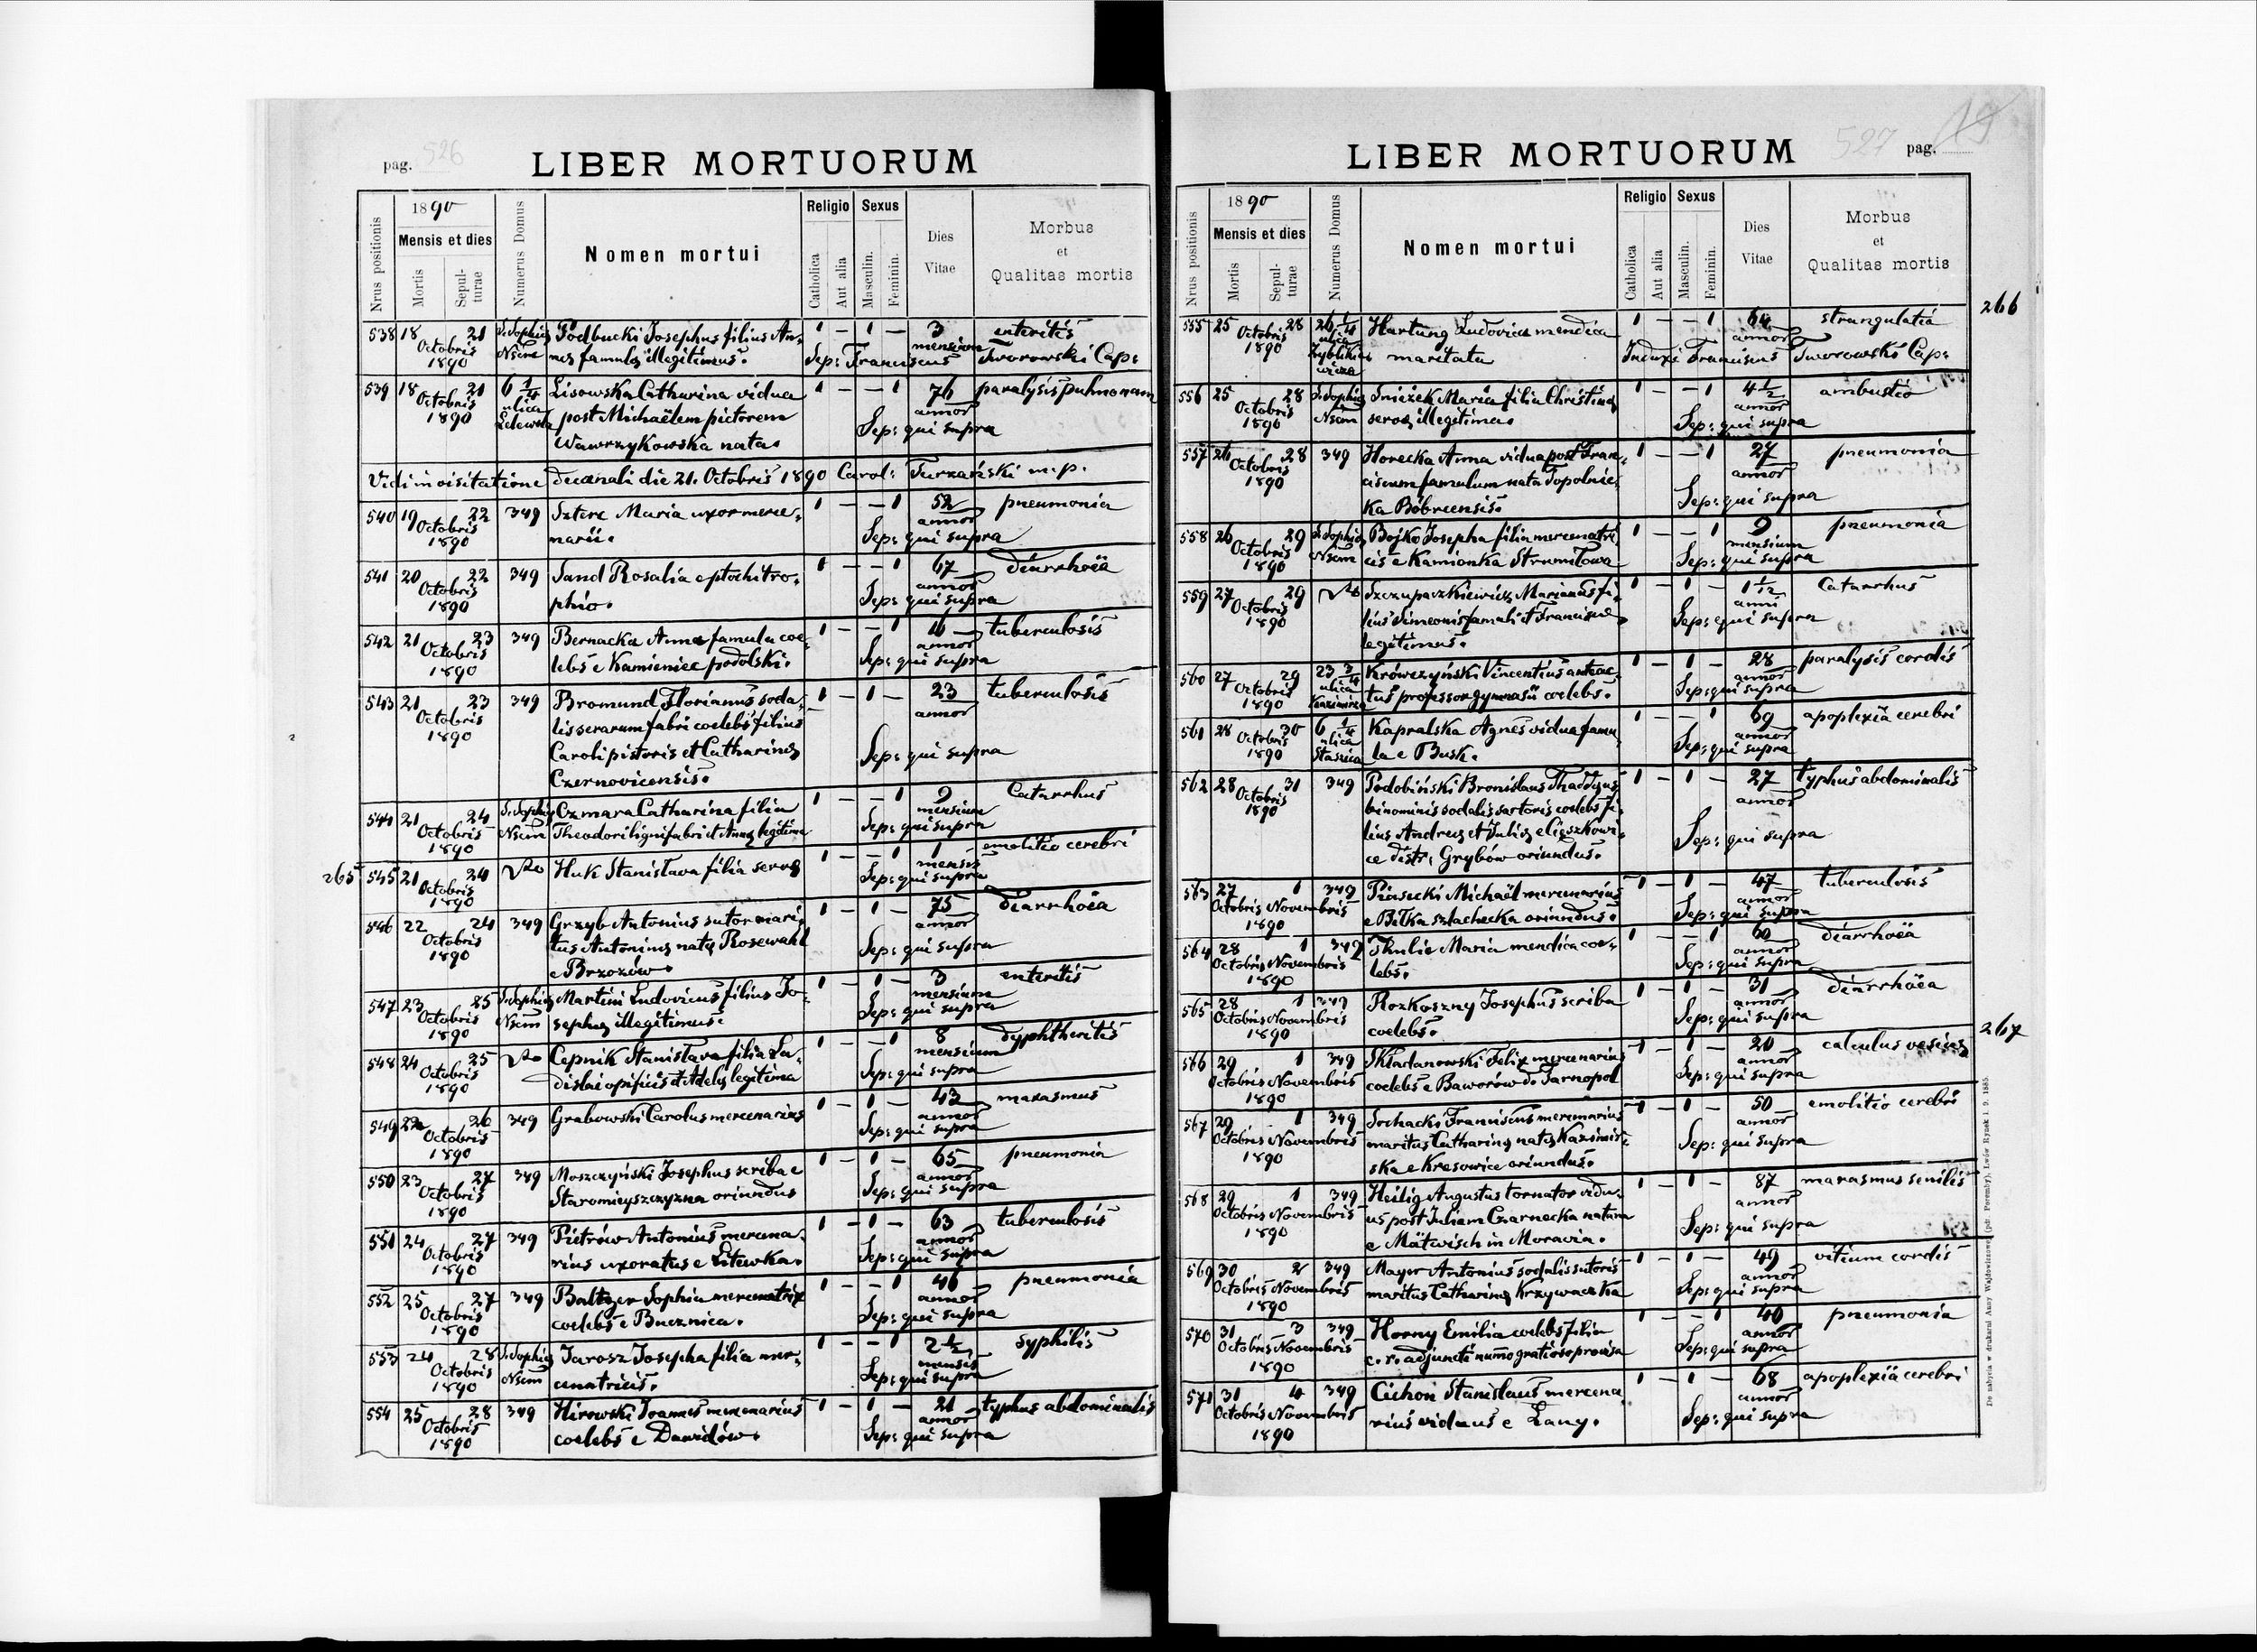 pag. 526
LIBER MORTUORUM
Nrus positionis
1890
Mensis et dies
Mortis
Sepulturae
Numerus Domus
Nomen mortui
Religio
Catholica
Aut alia
Sexus
Masculin.
Feminin.
Dies Vitae
Morbus et Qualitas mortis
538 18 21 S. Sophia Podbucki Josephus filius An- 1 – 1 – 3 enteritis
Octobris 1890 nae famulae illegitimus. Sep: Franciscus mensium Tworowski Cap:
539 18 21 6 1/4 Lisowska Catharina vidua 1 – – 1 76 paralysis pulmonum
Octobris ulica post Michaëlem pictorem annor
1890 Lelewela Wawrzykowska nata. Sep: qui supra
Vidi in visitatione Decanali die 21. Octobris 1890 Carol: Turzański m.p.
540 19 22 349 Sztere Maria uxor merce- 1 – – 1 52 pneumonia
Octobris 1890 narii. annor Sep: qui supra
541 20 22 349 Sand Rosalia e ptochitro- 1 – – 1 67 diarrhoëa
Octobris 1890 phio. annor Sep: qui supra
542 21 23 349 Bernacka Anna famula coe- 1 – – 1 tuberculosis
Octobris 1890 lebs e Kamieniec podolski. annor Sep: qui supra
543 21 23 349 Bromund Florianus soda- 1 – 1 – 23 tuberculosis
Octobris lis serarum fabri coelebs filius annor
1890 Caroli pistoris et Catharinae Sep: qui supra
Czernovicensis.
544 21 24 S. Sophia Ozmara Catharina filia 1 – – 1 9 Catarrhus
Octobris 1890 Nsum Theodori lignifabri et Annae legitima mensium Sep: qui supra
265
545 21 24 Huk Stanisłava filia servae 1 – – 1 1 emolitio cerebri
Octobris 1890 mensis Sep: qui supra
546 22 24 349 Grzyb Antonius sutor mari- 1 – 1 – 75 diarrhoëa
Octobris tus Antoninae natae Rosewahl annor
1890 e Brzozów. Sep: qui supra
547 23 25 S. Sophia Martini Ludovicus filius Jo- 1 – 1 – 3 enteritis
Octobris 1890 Nsum sephae illegitimus. mensium Sep: qui supra
548 24 25 Cepnik Stanisłava filia La- 1 – – 1 8 dyphtheritis
Octobris 1890 dislai opificis et Adelae legitima mensium Sep: qui supra
549 26 349 Grabowski Carolus mercenarius 1 – 1 – 43 marasmus
Octobris 1890 annor Sep: qui supra
550 23 27 349 Moszczyński Josephus scriba e 1 – 1 – 65 pneumonia
Octobris 1890 Staromieyszczyzna oriundus annor Sep: qui supra
551 24 27 349 Pietrów Antonius mercena- 1 – 1 – 63 tuberculosis
Octobris 1890 rius uxoratus e Litewka. annor Sep: qui supra
552 25 27 349 Baltzer Sophia mercenatrix 1 – – 1 46 pneumonia
Octobris 1890 coelebs e Bucznica. annor Sep: qui supra
553 24 28 S. Sophia Jarosz Josepha filia mer- 1 – – 1 2 1/2 syphilis
Octobris 1890 Nsum cenatricis. mensis Sep: qui supra
554 25 28 349 Hirowski Joannes mercenarius 1 – 1 – 21 typhus abdominalis
Octobris 1890 coelebs e Dawidów. annor Sep: qui supra
527 pag. 19
LIBER MORTUORUM
Nrus positionis
1890
Mensis et dies
Mortis
Sepulturae
Numerus Domus
Nomen mortui
Religio
Catholica
Aut alia
Sexus
Masculin.
Feminin.
Dies Vitae
Morbus et Qualitas mortis
266
555 25 28 26 1/4 Hartung Ludovica mendica 1 – – 1 64 strangulatia
Octobris 1890 ulica Zyblikiewicza maritata annor Franciscus Tworowski Cap:
556 25 28 S. Sophia Sniżek Maria filia Christinae 1 – – 1 4 1/2 ambustio
Octobris 1890 Nsum servae illegitima. annor Sep: qui supra
557 26 28 349 Horecka Anna vidua post Fran- 1 – – 1 27 pneumonia
Octobris ciscum famulum nata Topolnic- annor
1890 ka Bóbrcensis. Sep: qui supra
558 26 29 S. Sophia Bojko Josepha filia mercenatri- 1 – – 1 9 pneumonia
Octobris 1890 Nsum cis e Kamionka Strumiłowa mensium Sep: qui supra
559 27 29 Szczupaczkiewicz Marianus fi- 1 – 1 1/2 Catarrhus
Octobris lius Simeonis famuli et Franciscae anni
1890 legitimus. Sep: qui supra
560 27 29 23 3/4 Krówczyński Vincentius anteac- 1 – 1 – 28 paralysis cordis
Octobris 1890 ulica Kazimirza tus professor gymnasii coelebs. annor Sep: qui supra
561 28 30 6 1/4 Kapralska Agnes vidua famu- 1 – – 1 69 apoplexia cerebri
Octobris 1890 ulica Staszica la e Busk. annor Sep: qui supra
562 28 31 349 Podobiński Bronislaus Thaddaeus 1 – 1 – 27 typhus abdominalis
Octobris binominis sodalis sartoris coelebs fi- annor
1890 lius Andreae et Juliae e Cięszkowi- Sep: qui supra
ce distr. Grybów oriundus.
563 27 1 349 Piasecki Michaël mercenarius 1 – 1 – 47 tuberculosis
Octobris Novembris 1890 e Biłka szlachecka oriundus. annor Sep: qui supra
564 28 1 349 Thulie Maria mendica coe- 1 – – 1 60 diarrhoëa
Octobris Novembris 1890 lebs. annor Sep: qui supra
565 28 1 349 Rozkoszny Josephus scriba 1 – 1 – 31 diarrhoëa
Octobris Novembris 1890 coelebs. annor Sep: qui supra
267
566 29 1 349 Składanowski Felix mercenarius 1 – 1 – 20 calculus vesicae
Octobris Novembris 1890 coelebs e Baworów d. Tarnopol annor Sep: qui supra
567 29 1 349 Sochacki Franciscus mercenarius 1 – 1 – 50 emolitio cerebri
Octobris Novembris maritus Catharinae natae Kazimir- annor
1890 ska e Kresowice oriundus. Sep: qui supra
568 29 1 349 Heilig Augustus tornator vidu- 1 – 1 – 87 marasmus senilis
Octobris Novembris us post Juliam Czarnecka natam annor
1890 e Mätwisch in Moravia. Sep: qui supra
569 30 2 349 Mayer Antonius sodalis sutoris 1 – 1 – 49 vitium cordis
Octobris Novembris 1890 maritus Catharinae Krzywacka annor Sep: qui supra
570 31 3 349 Horny Emilia coelebs filia 1 – – 1 40 pneumonia
Octobris Novembris 1890 c. r. adjuncti annor Sep: qui supra
571 31 4 349 Cichoń Stanislaus mercena 1 – 1 – 68 apoplexia cerebri
Octobris Novembris 1890 rius viduus e Lany. annor Sep: qui supra
De nabycia w drukarni Anny Wajdowiczowej (pdr. Poremby), Lwów Rynek l. 9. 1885.